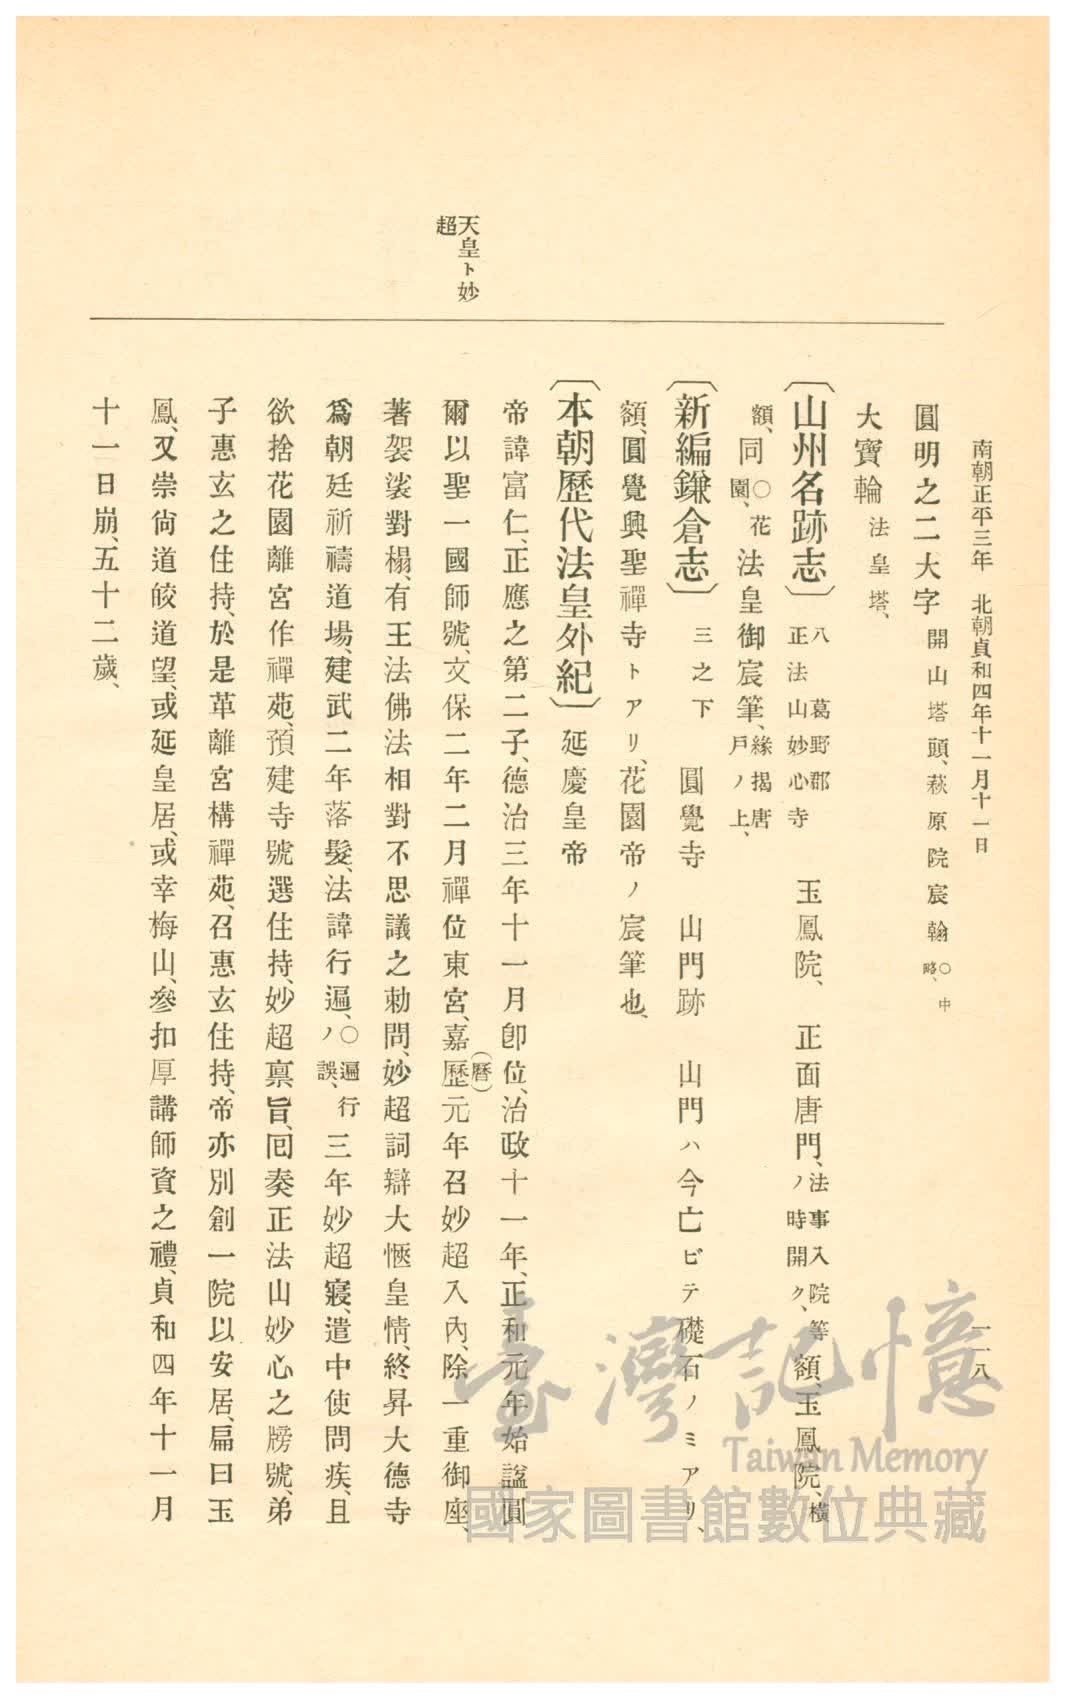 南朝正平三年　北朝貞和四年十一月十一日
一一八
天皇ト妙
超
圓明之二大字　開山塔頭、萩原院宸翰　○中略、
大寶輪　法皇塔、
〔山州名跡志〕　八　葛野郡　正法山妙心寺　玉鳳院、　正面唐門、法事入院等ノ時開ク、額、玉鳳院、横
額、同○花園、法皇御宸筆、緣揭唐戶ノ上、
〔新編鎌倉志〕　三之下　圓覺寺　山門跡　山門ハ今亡ビテ礎石ノミアリ、
額、圓覺興聖禪寺トアリ、花園帝ノ宸筆也、
〔本朝歷代法皇外紀〕　延慶皇帝
帝諱富仁、正應之第二子、德治三年十一月卽位、治政十一年、正和元年始諡圓
爾以聖一國師號、文保二年二月禪位東宮、嘉歷（曆）元年召妙超入內、除一重御座、
著袈裟對榻、有王法佛法相對不思議之勅問、妙超詞辯大愜皇情、終昇大德寺
爲朝廷祈禱道場、建武二年落髮、法諱行遍、○遍行ノ誤、三年妙超寢、遣中使問疾、且
欲捨花園離宮作禪苑、預建寺號選住持、妙超稟旨、囘奏正法山妙心之牓號、弟
子惠玄之住持、於是革離宮構禪苑、召惠玄住持、帝亦別創一院以安居、扁曰玉
鳳、又崇尙道皎道望、或延皇居、或幸梅山、參扣厚講師資之禮、貞和四年十一月
十一日崩、五十二歲、
臺灣記憶
Taiwan Memory
國家圖書館數位典藏